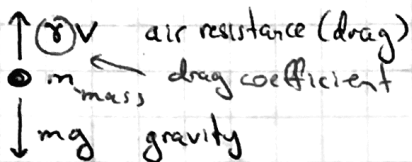 γv air resistance (drag)
m mass drag coefficient
mg gravity